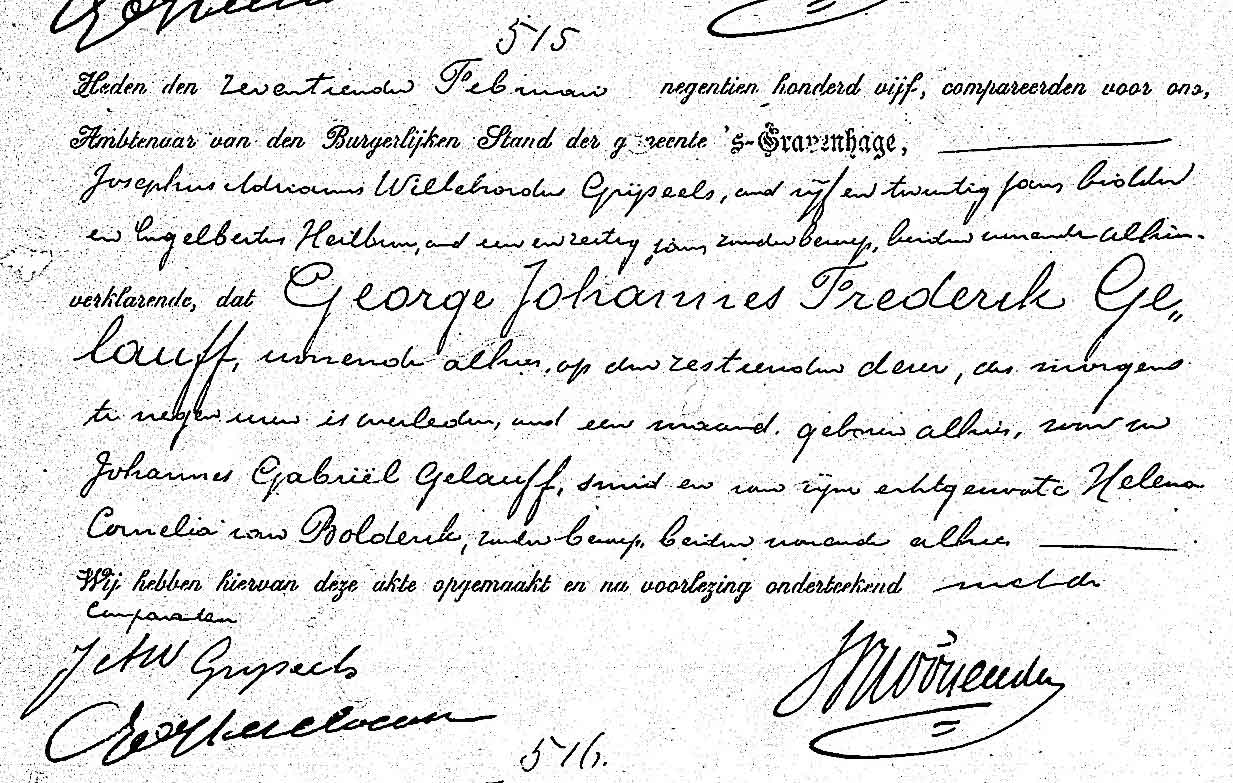 515
Heden den zeventienden Februari negentien honderd vijf, compareerden voor ons,
Ambtenaar van den Burgerlijken Stand der gemeente 's-Gravenhage,
Josephus Adrianus Willebrordus Grijseels, oud vijf en twintig jaren, bidder
en Engelbertus Heilbron, oud een en zestig jaren, zonder beroep, beiden wonende alhier.
verklarende, dat George Johannes Frederik Ge„
lauff, wonende alhier, op den zestienden dezer, des morgens
te negen uren is overleden, oud een maand, geboren alhier, zoon van
Johannes Gabriël Gelauff, smid en van zijne echtgenoote Helena
Cornelia van Bolderik, zonder beroep, beiden wonende alhier
Wij hebben hiervan deze akte opgemaakt en na voorlezing onderteekend met de
Comparanten
J A W Grijseels
516.